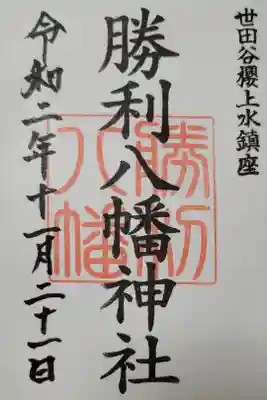 世田谷櫻上水鎮座
勝利八幡神社
勝利八幡
令和二年十一月二十一日